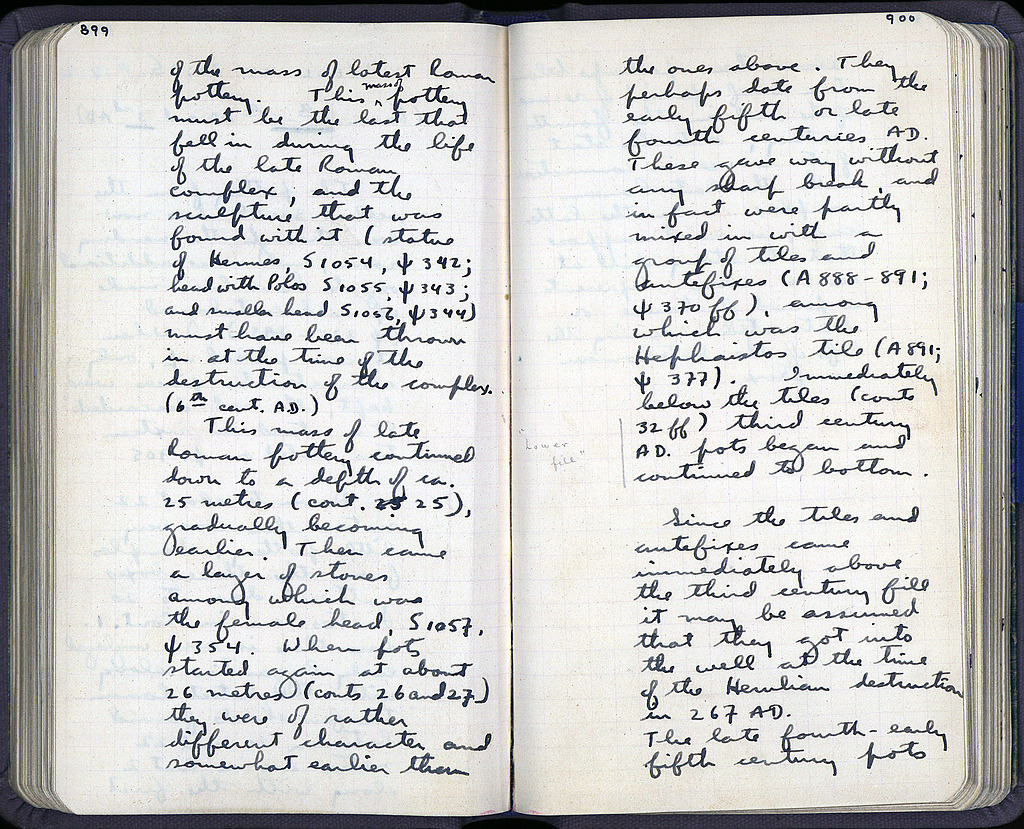 899
of the mass of latest Roman
pottery. This mass of pottery
must be the last that
fell in during the life
of the late Roman
complex; and the
sculpture that was
found with it (statue
of Hermes, S1054, ψ 342;
head with Polos S1055, ψ343;
and smaller head S1056, ψ344)
must have been thrown
in at the time of the
destruction of the complex.
(6th cent. A.D.)
This mass of late
Roman pottery continued
down to a depth of ca.
25 metres (cont. 25 25),
gradually becoming
earlier. Then came
a layer of stones
among which was
the female head, S1057,
ψ 354 When pots
started again at about
26 metres (conts 26 and 27)
they were of rather
different character and
somewhat earlier than
900
the ones above. They
perhaps date from the
early fifth or late
fourth centuries AD.
These gave way without
any sharp break, and
in fact were partly
mixed in with a
group of tiles and
antefixes (A 888-891;
ψ 370 ff), among
which was the
Hephaistos tile (A 891;
ψ 377). Immediately
below the tiles (conts
32 ff) third century
AD. pots began and
continued to bottom.
"Lower
fill"
Since the tiles and
antefixes came
immediately above
the third century fill
it may be assumed
that they got into
the well at the time
of the Herulian destruction
in 267 AD.
The late fourth-early
fifth century pots